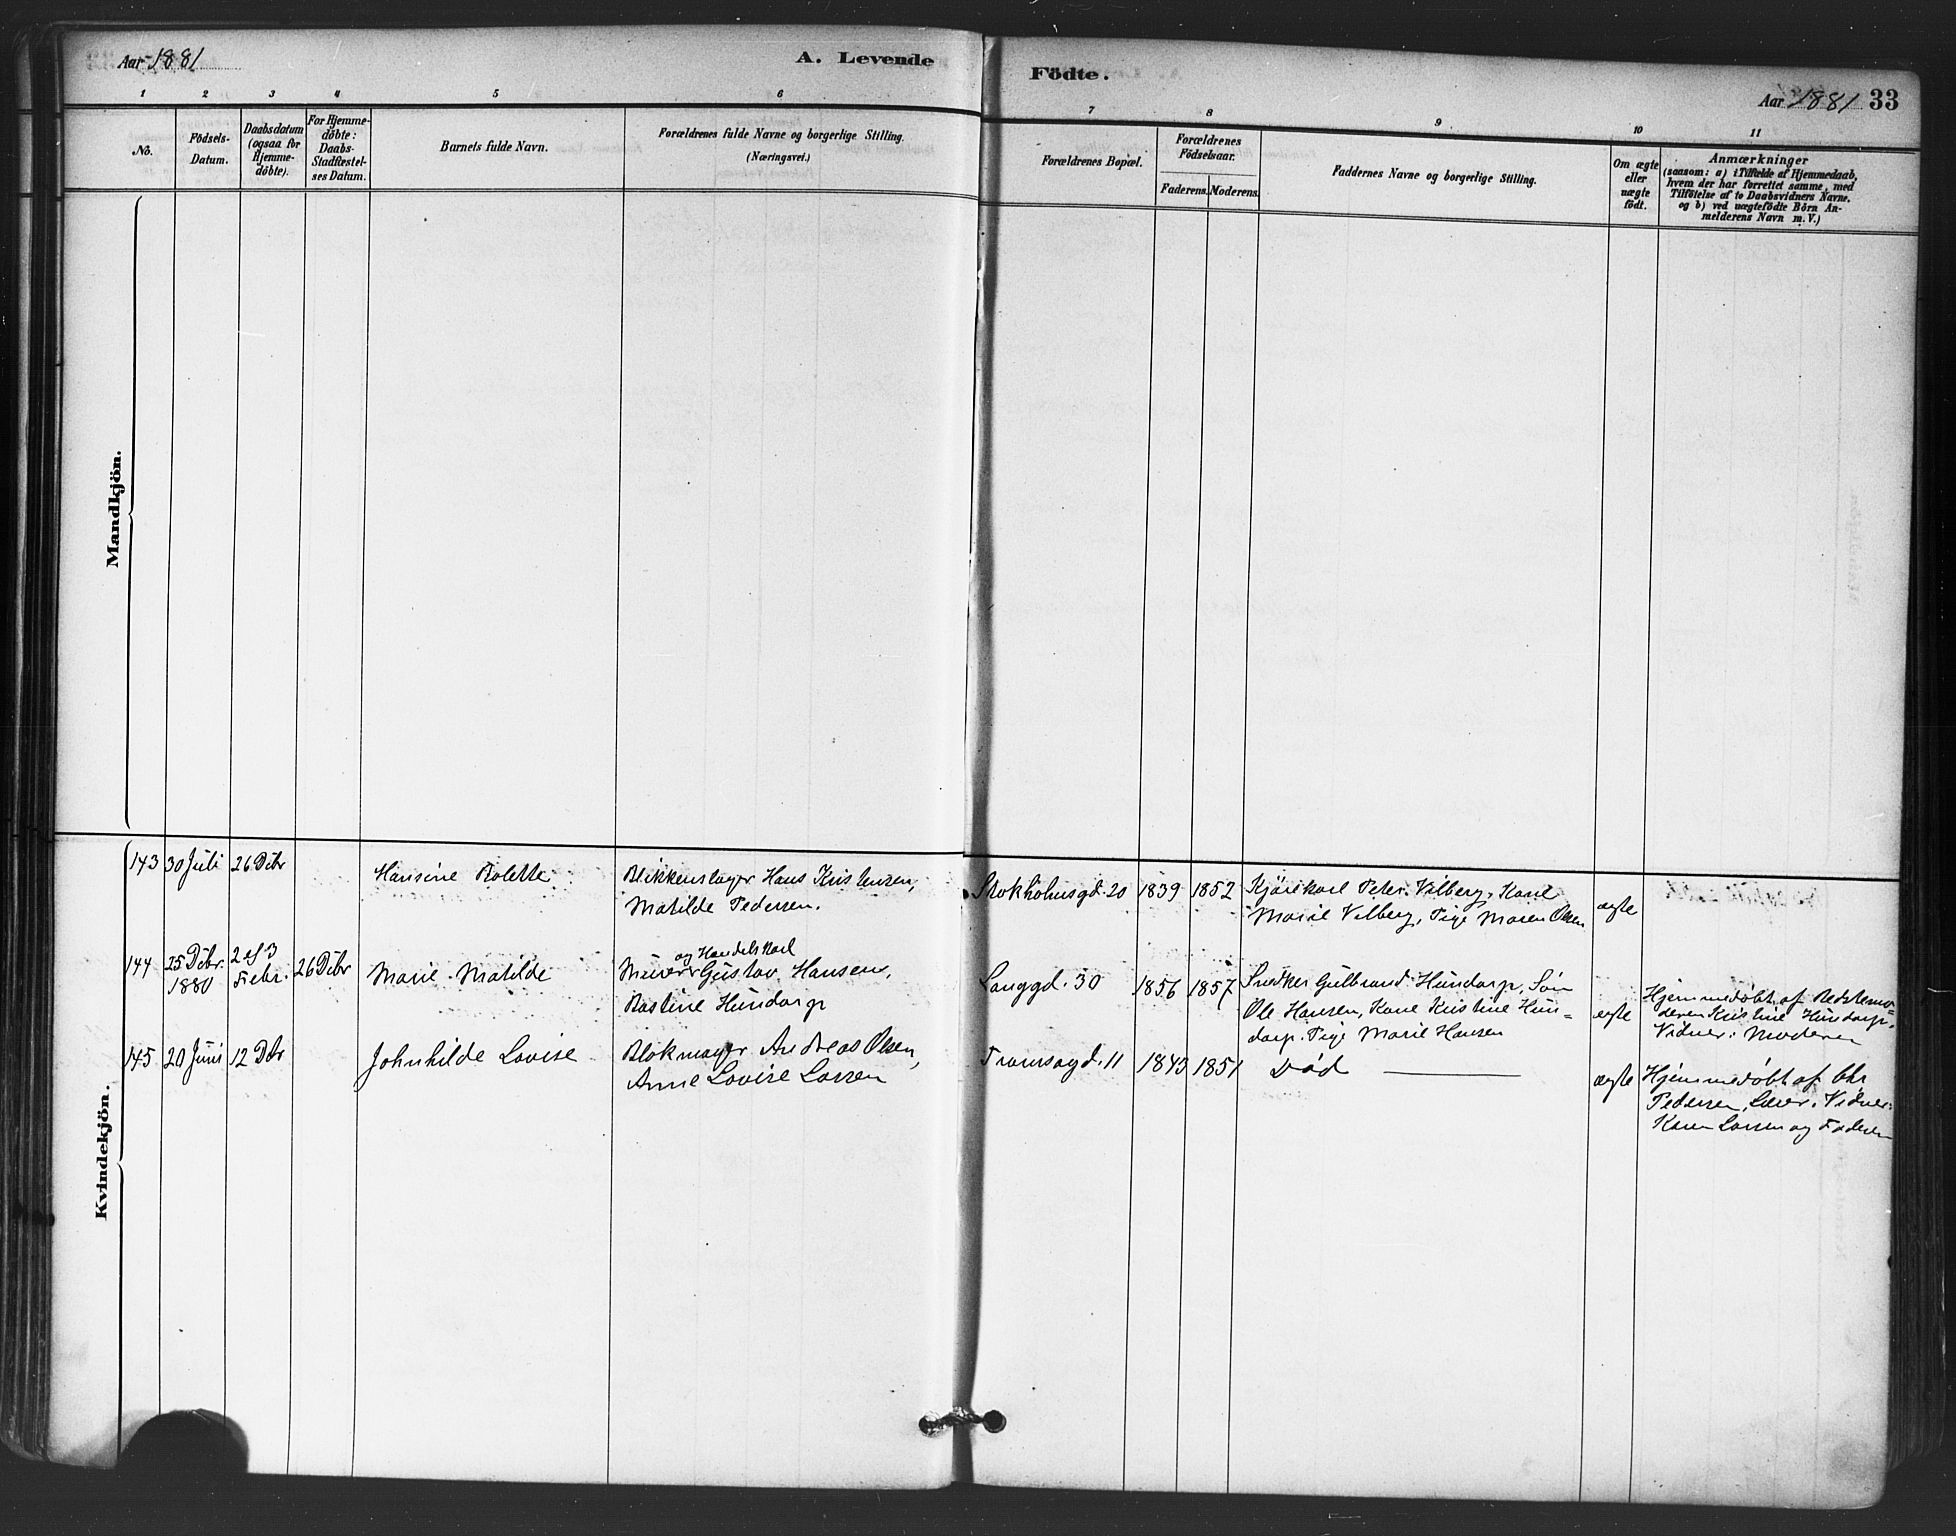 Aar 1881
A. Levende
Födte.
Aar 1881 33
1 2 3 4 5 6 7 8 9 10 11
No.
Födsels-
Datum.
Daabsdatum
(ogsaa for
Hjemme-
döbte).
For Hjemme-
döbte:
Daabs-
Stadfæstel-
ses Datum.
Barnets fulde Navn.
Forældrenes fulde Navne og borgerlige Stilling.
(Næringsvei.)
Forældrenes Bopæl.
Forældrenes
Födselsaar.
Faderens. Moderens.
Faddernes Navne og borgerlige Stilling.
Om ægte
eller
uægte
födt.
Anmærkninger
(saasom: a) i Tilfælde af Hjemmedaab,
hvem der har forrettet samme, med
Tilföielse af to Daabsvidners Navne,
og b) ved uægtefödte Börn An-
melderens Navn m. V.)
Mandkjön.
Kvindekjön.
143 30 Juli 26 Debr
Hansine Bolette
Blikkenslager Hans Kristensen,
Matilde Pedersen.
Stokholmsgd. 20 1839 1852
Kjørekarl Peter Vilberg, Kone
Marie Vilberg, Pige Maren Olsen
ægte
144 25 Debr.
1880
2 ef 3
Febr.
26 Debr
Marie Matilde
og Handelskarl
Murer Gustav Hansen,
Bastine Hundorp
Langgd. 30 1856 1857
Snedker Gulbrand Hundorp, Søn
Ole Hansen, Kone Kristine Hun=
dorp. Pige Marie Hansen
ægte
Hjemmedøbt af Bedstemo=
deren Kristine Hundorp.
Vidner: Moderen
145 20 Juni 12 Dbr
Johnhilde Lovise
Blokmager Andreas Olsen,
Anne Lovise Larsen
Tromsøgd. 11 1843 1851
Død
ægte
Hjemmedøbt af Chr
Pedersen, Lærer. Vidner:
Karen Larsen og Faderen